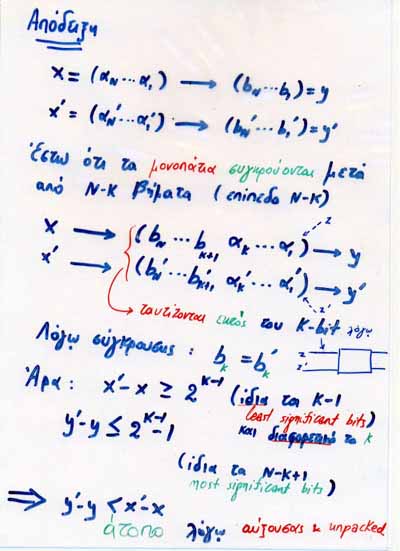 Απόδειξη
x = (α_N ... α_1) → (b_N ... b_1) = y
x' = (α_N' ... α_1') → (b_N' ... b_1') = y'
Έστω ότι τα μονοπάτια συγκρούονται μετά
από N-K βήματα (επίπεδο N-K)
z
x → (b_N ... b_{K+1} α_K ... α_1) → y
x' → (b_N' ... b_{K+1}' α_K' ... α_1') → y'
z'
ταυτίζονται εκτός του K-bit λόγω
Λόγω σύγκρουσης : b_K = b_K'
z
z'
Άρα : x'-x ≥ 2^{K-1} (ίδια τα K-1
least significant bits)
y'-y ≤ 2^{K-1}-1 και διαφορετικό το K
(ίδια τα N-K+1
most significant bits)
⇒ y'-y < x'-x
άτοπο λόγω αύξουσας κ unpacked